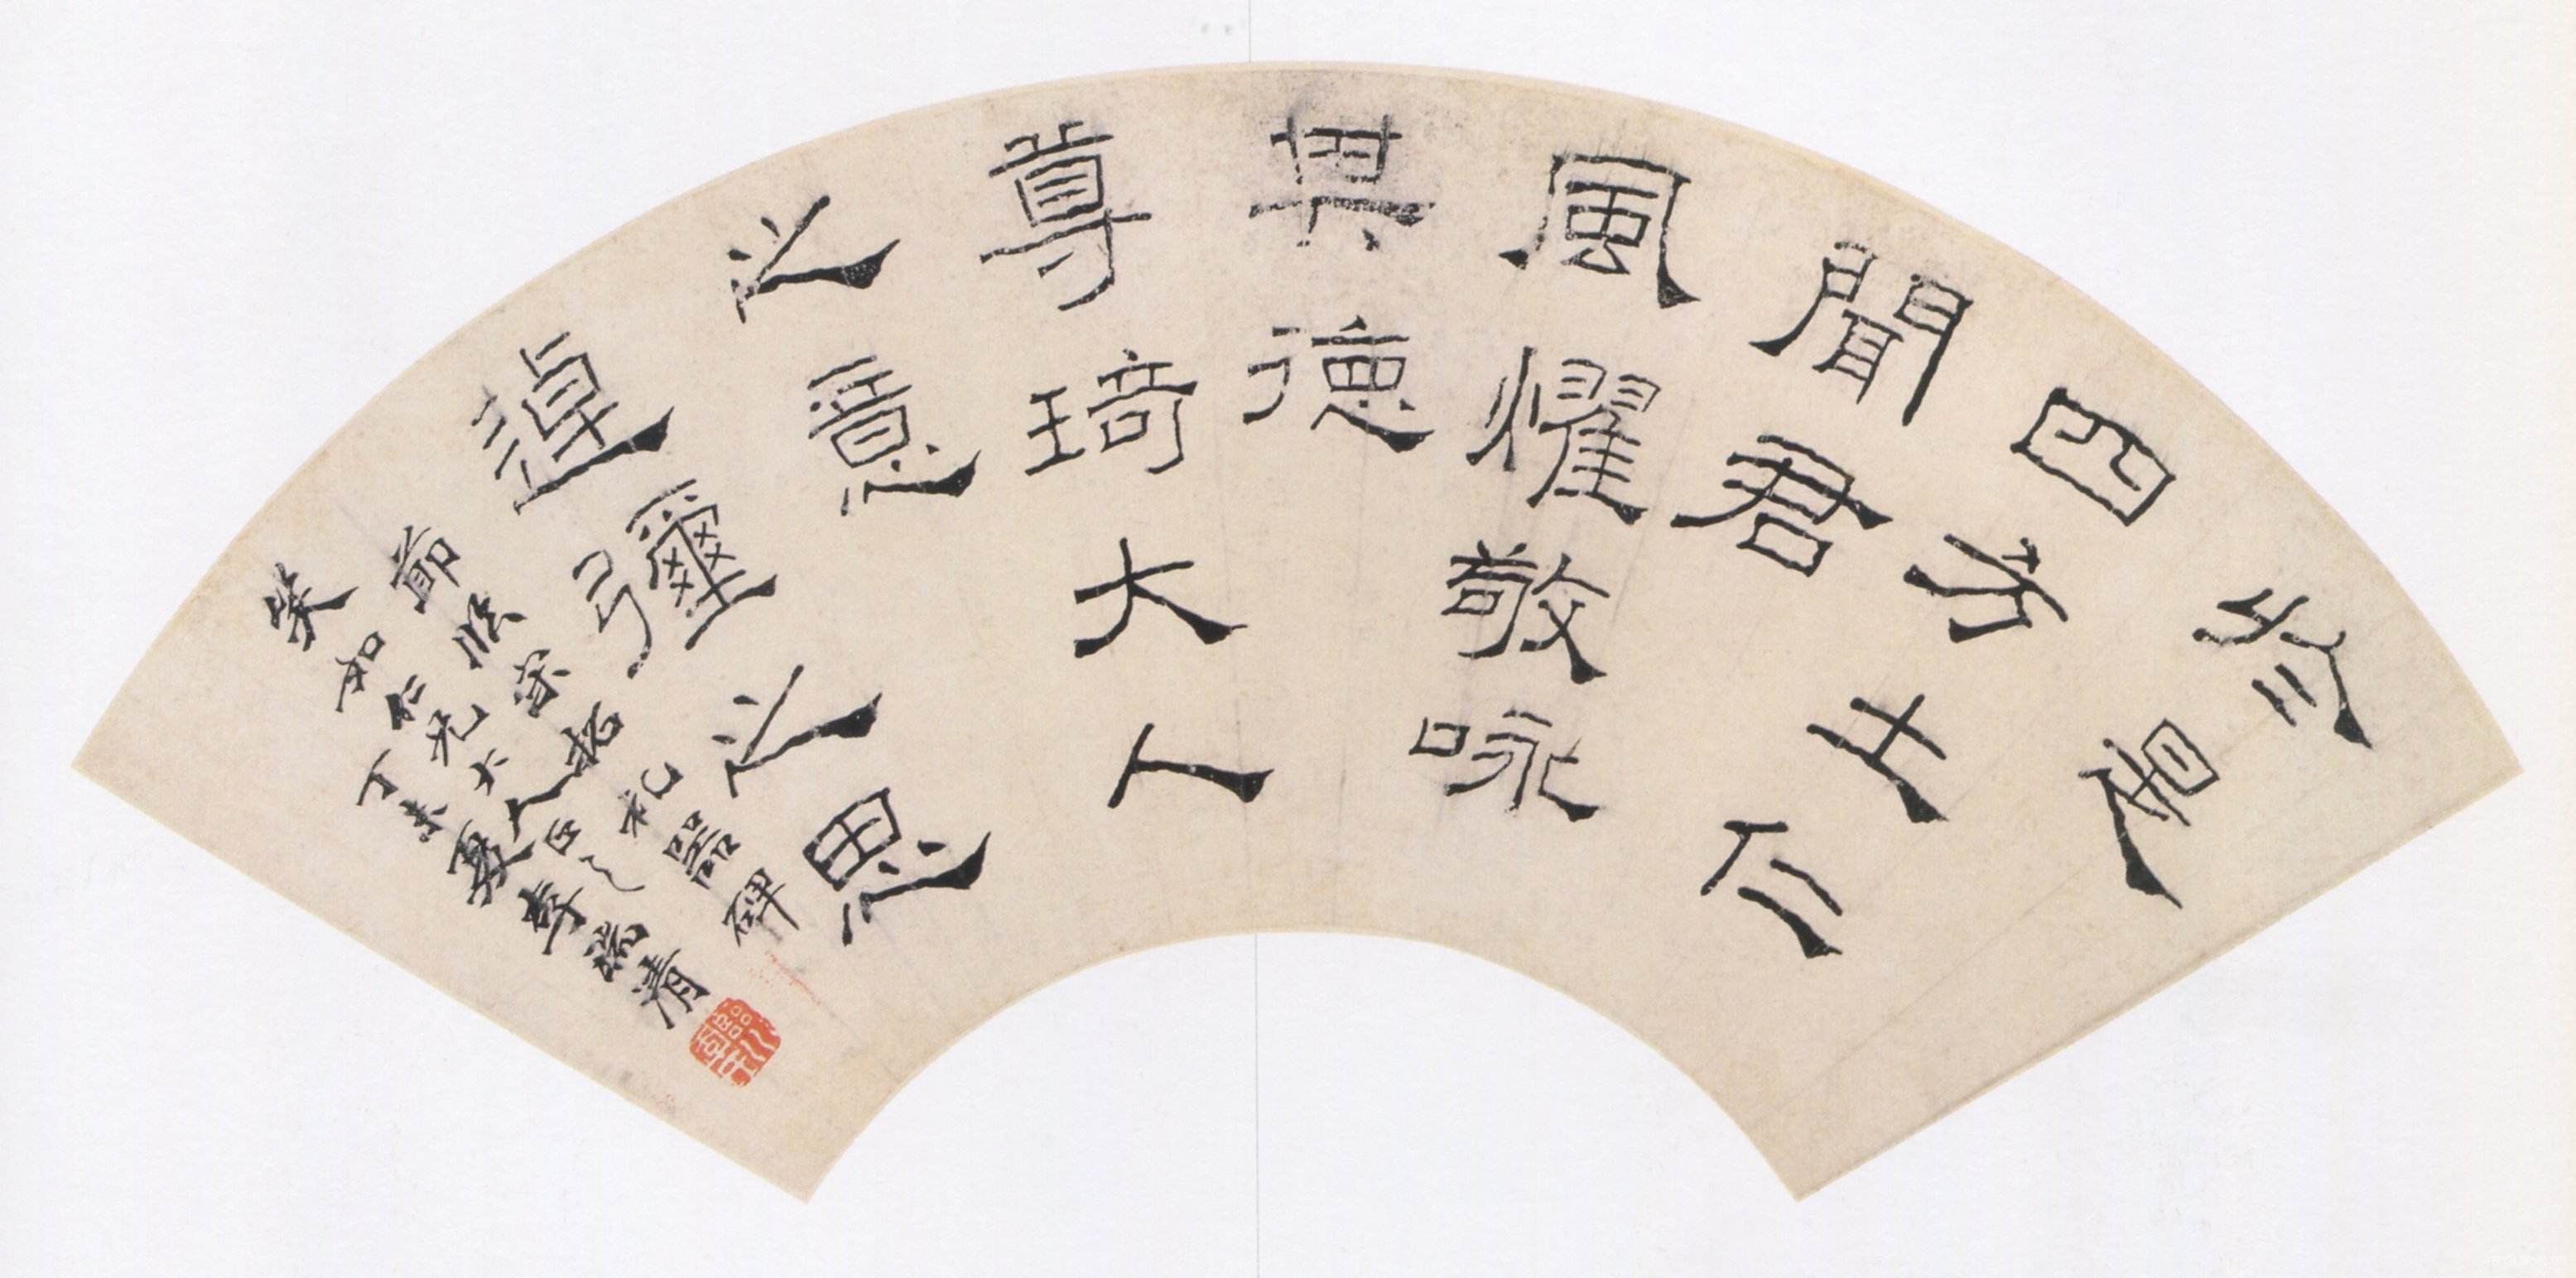 於是
四方士仁
聞君
風燿敬咏
其德
尊琦大人
之意
逴彌之思
節臨宋拓礼器碑
如仁兄大人正之
丁未夏李瑞清